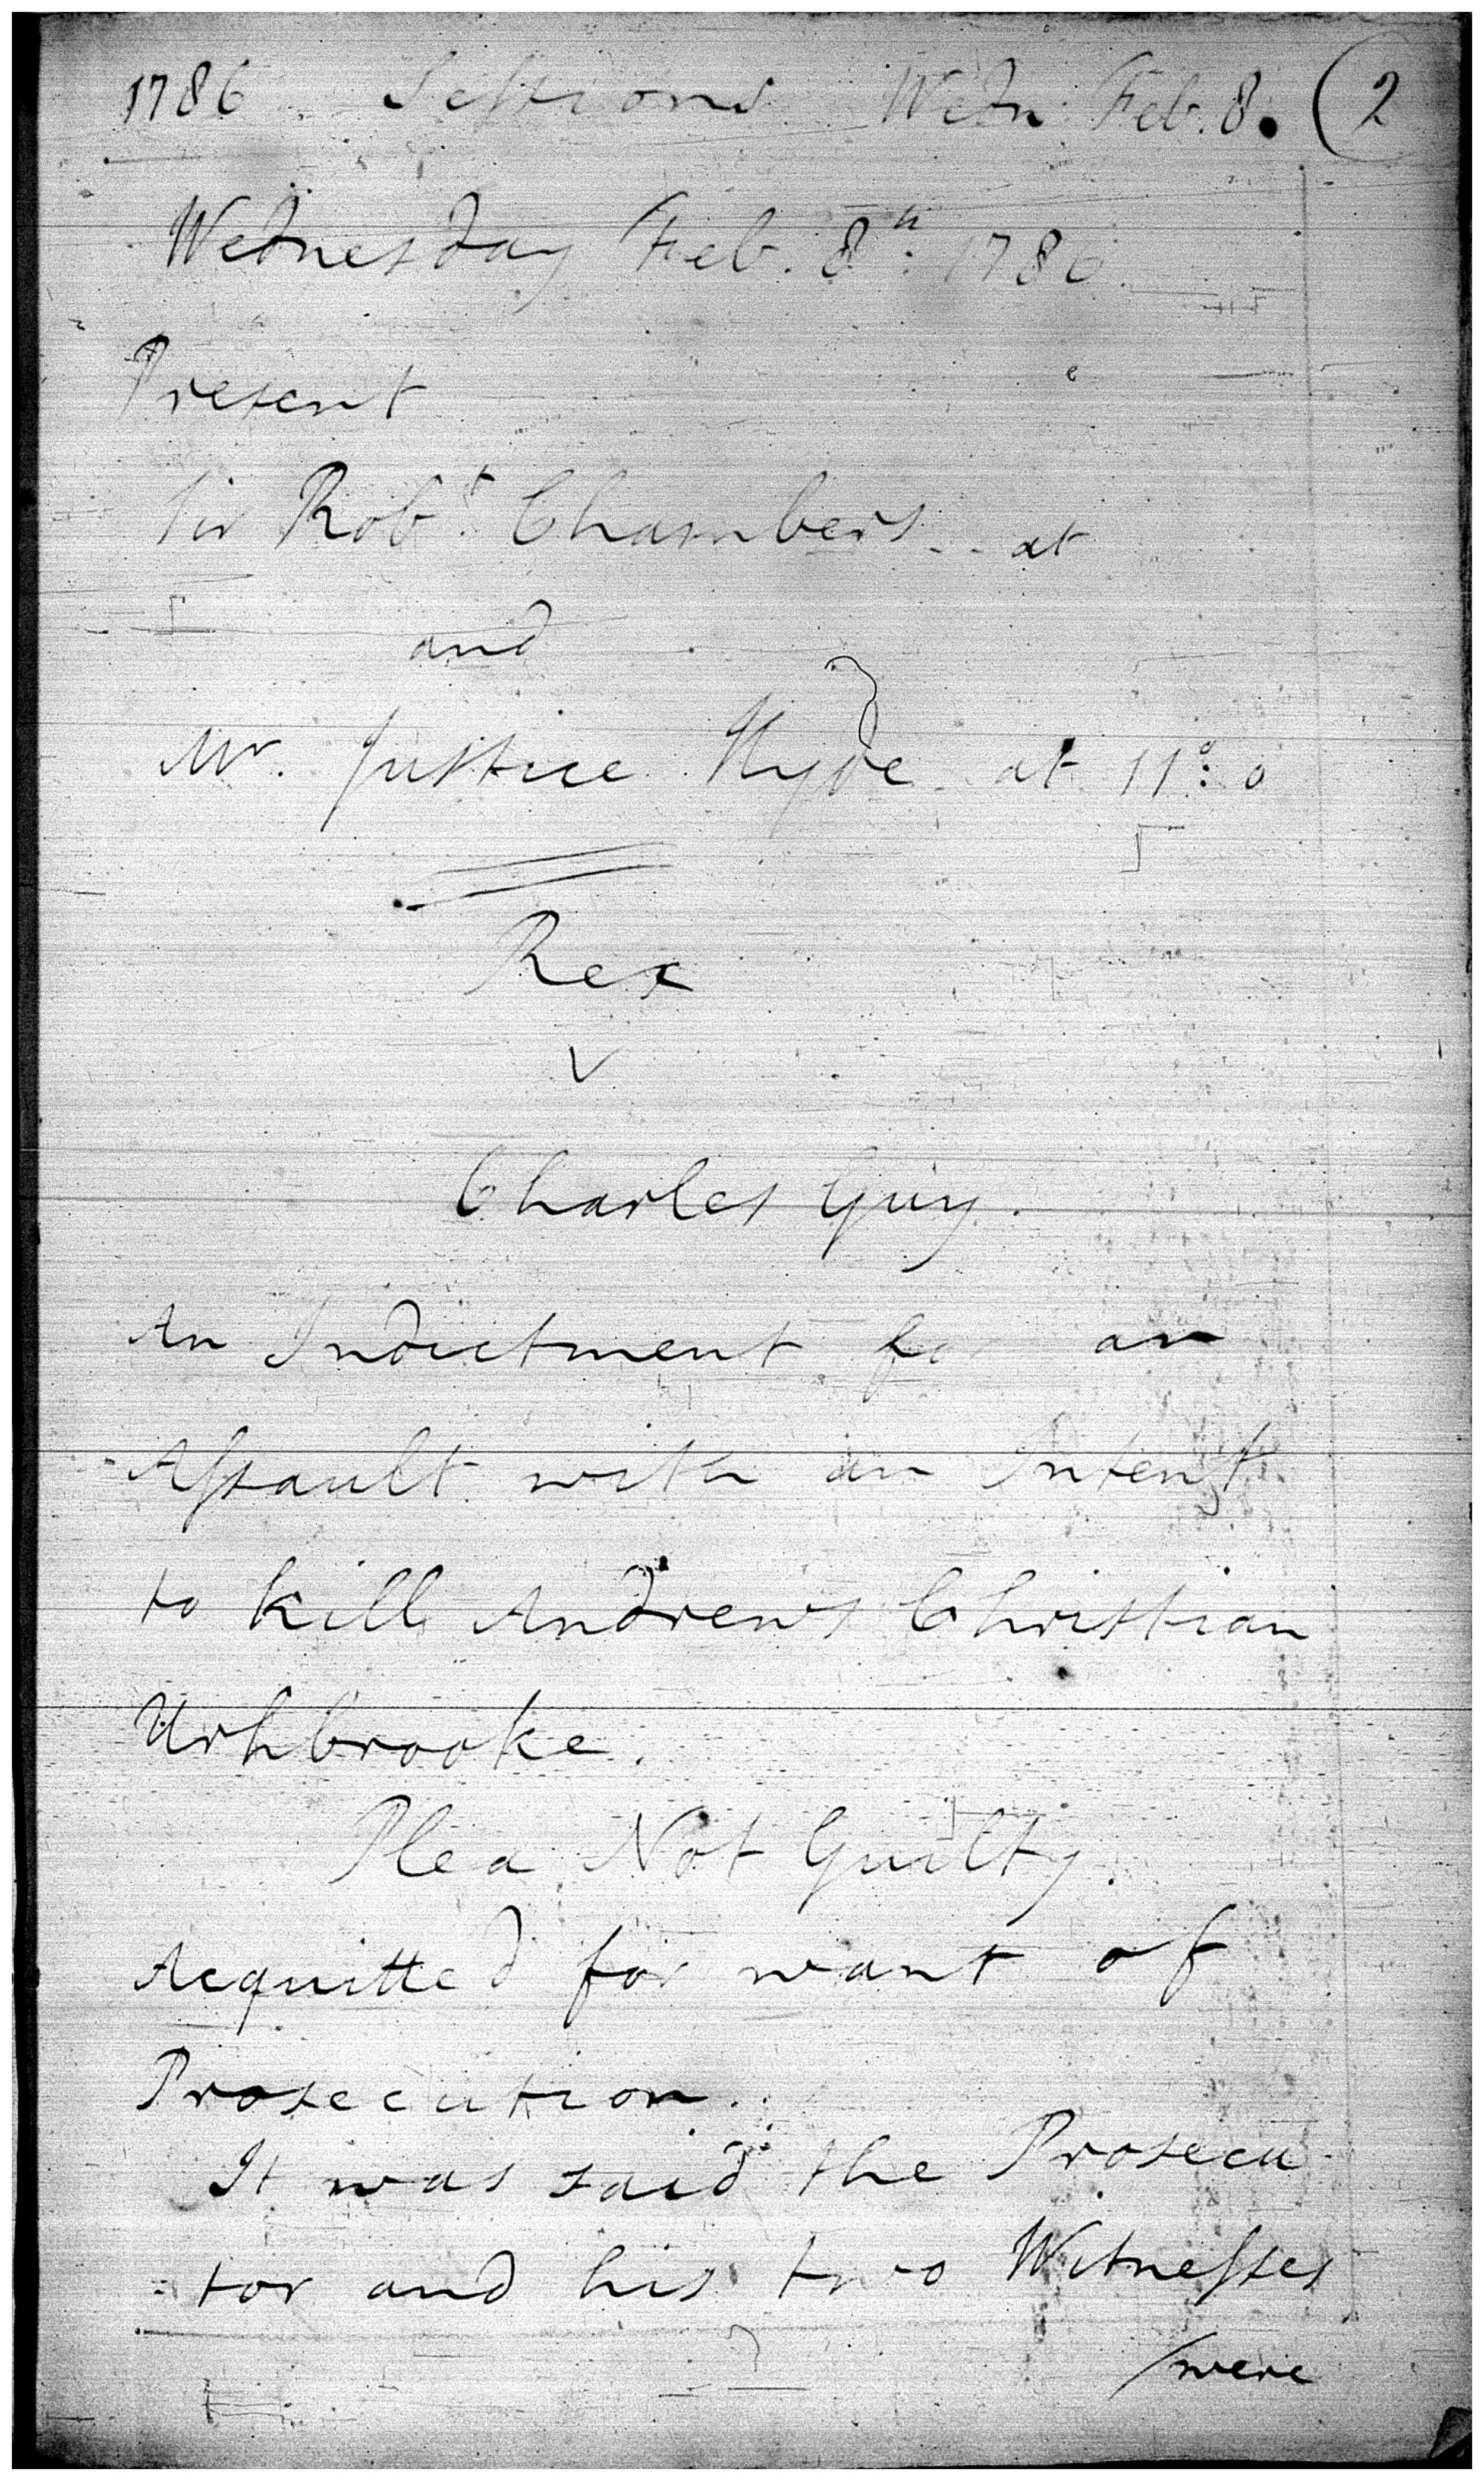 1786 Sessions Wedn. Feb. 8. (2
Wednesday Feb. 8th: 1786
Present
Sir Robt. Chambers - - at
and
Mr. Justice Hyde at 11: 0
Rex
v
Charles Guy.
An Indictment for an
Assault with an Intent
to kill Andrews Christian
Urhbrooke.
Plea Not Guilty.
Acquitted for want of
Prosecution.
It was said the Prosecu
-tor and his two Witnesses
/were